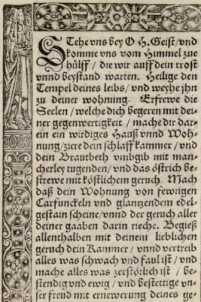 STehe vns bey O H. Geist/vnd
komme vns vom Himmel zue
hülff / die wir auff dein trost
vnnd beystand warten. Heilige den
Tempel deines leibs/ vnd weyhe jhn
zu deiner wohnung. Erfrewe die
Seelen / welche dich begeren mit dei-
ner gegenwertigkeit / mache dir dar-
ein ein würdiges Hauß vnnd Woh-
nung/ziere dein schlaffkammer / vnd
dein Brautbeth vmbgib mit man-
cherley tugenden/ vnd das östrich be-
strewe mit köstlichem geruch. Mach
daß dein Wohnung von fewrigen
Carfunckeln vnd glantzendem edel-
gestain scheine/vnnd der geruch aller
deiner gaaben darin rieche. Begieß
allenthalben mit deinem lieblichen
geruch dein Kammer / vnnd vertreib
alles was schwach vnd faul ist / vnd
mache alles was zerstörlich ist / be-
stendig vnd ewig / vnd bestettige vn-
ser frend mit ernewerung deines ge-